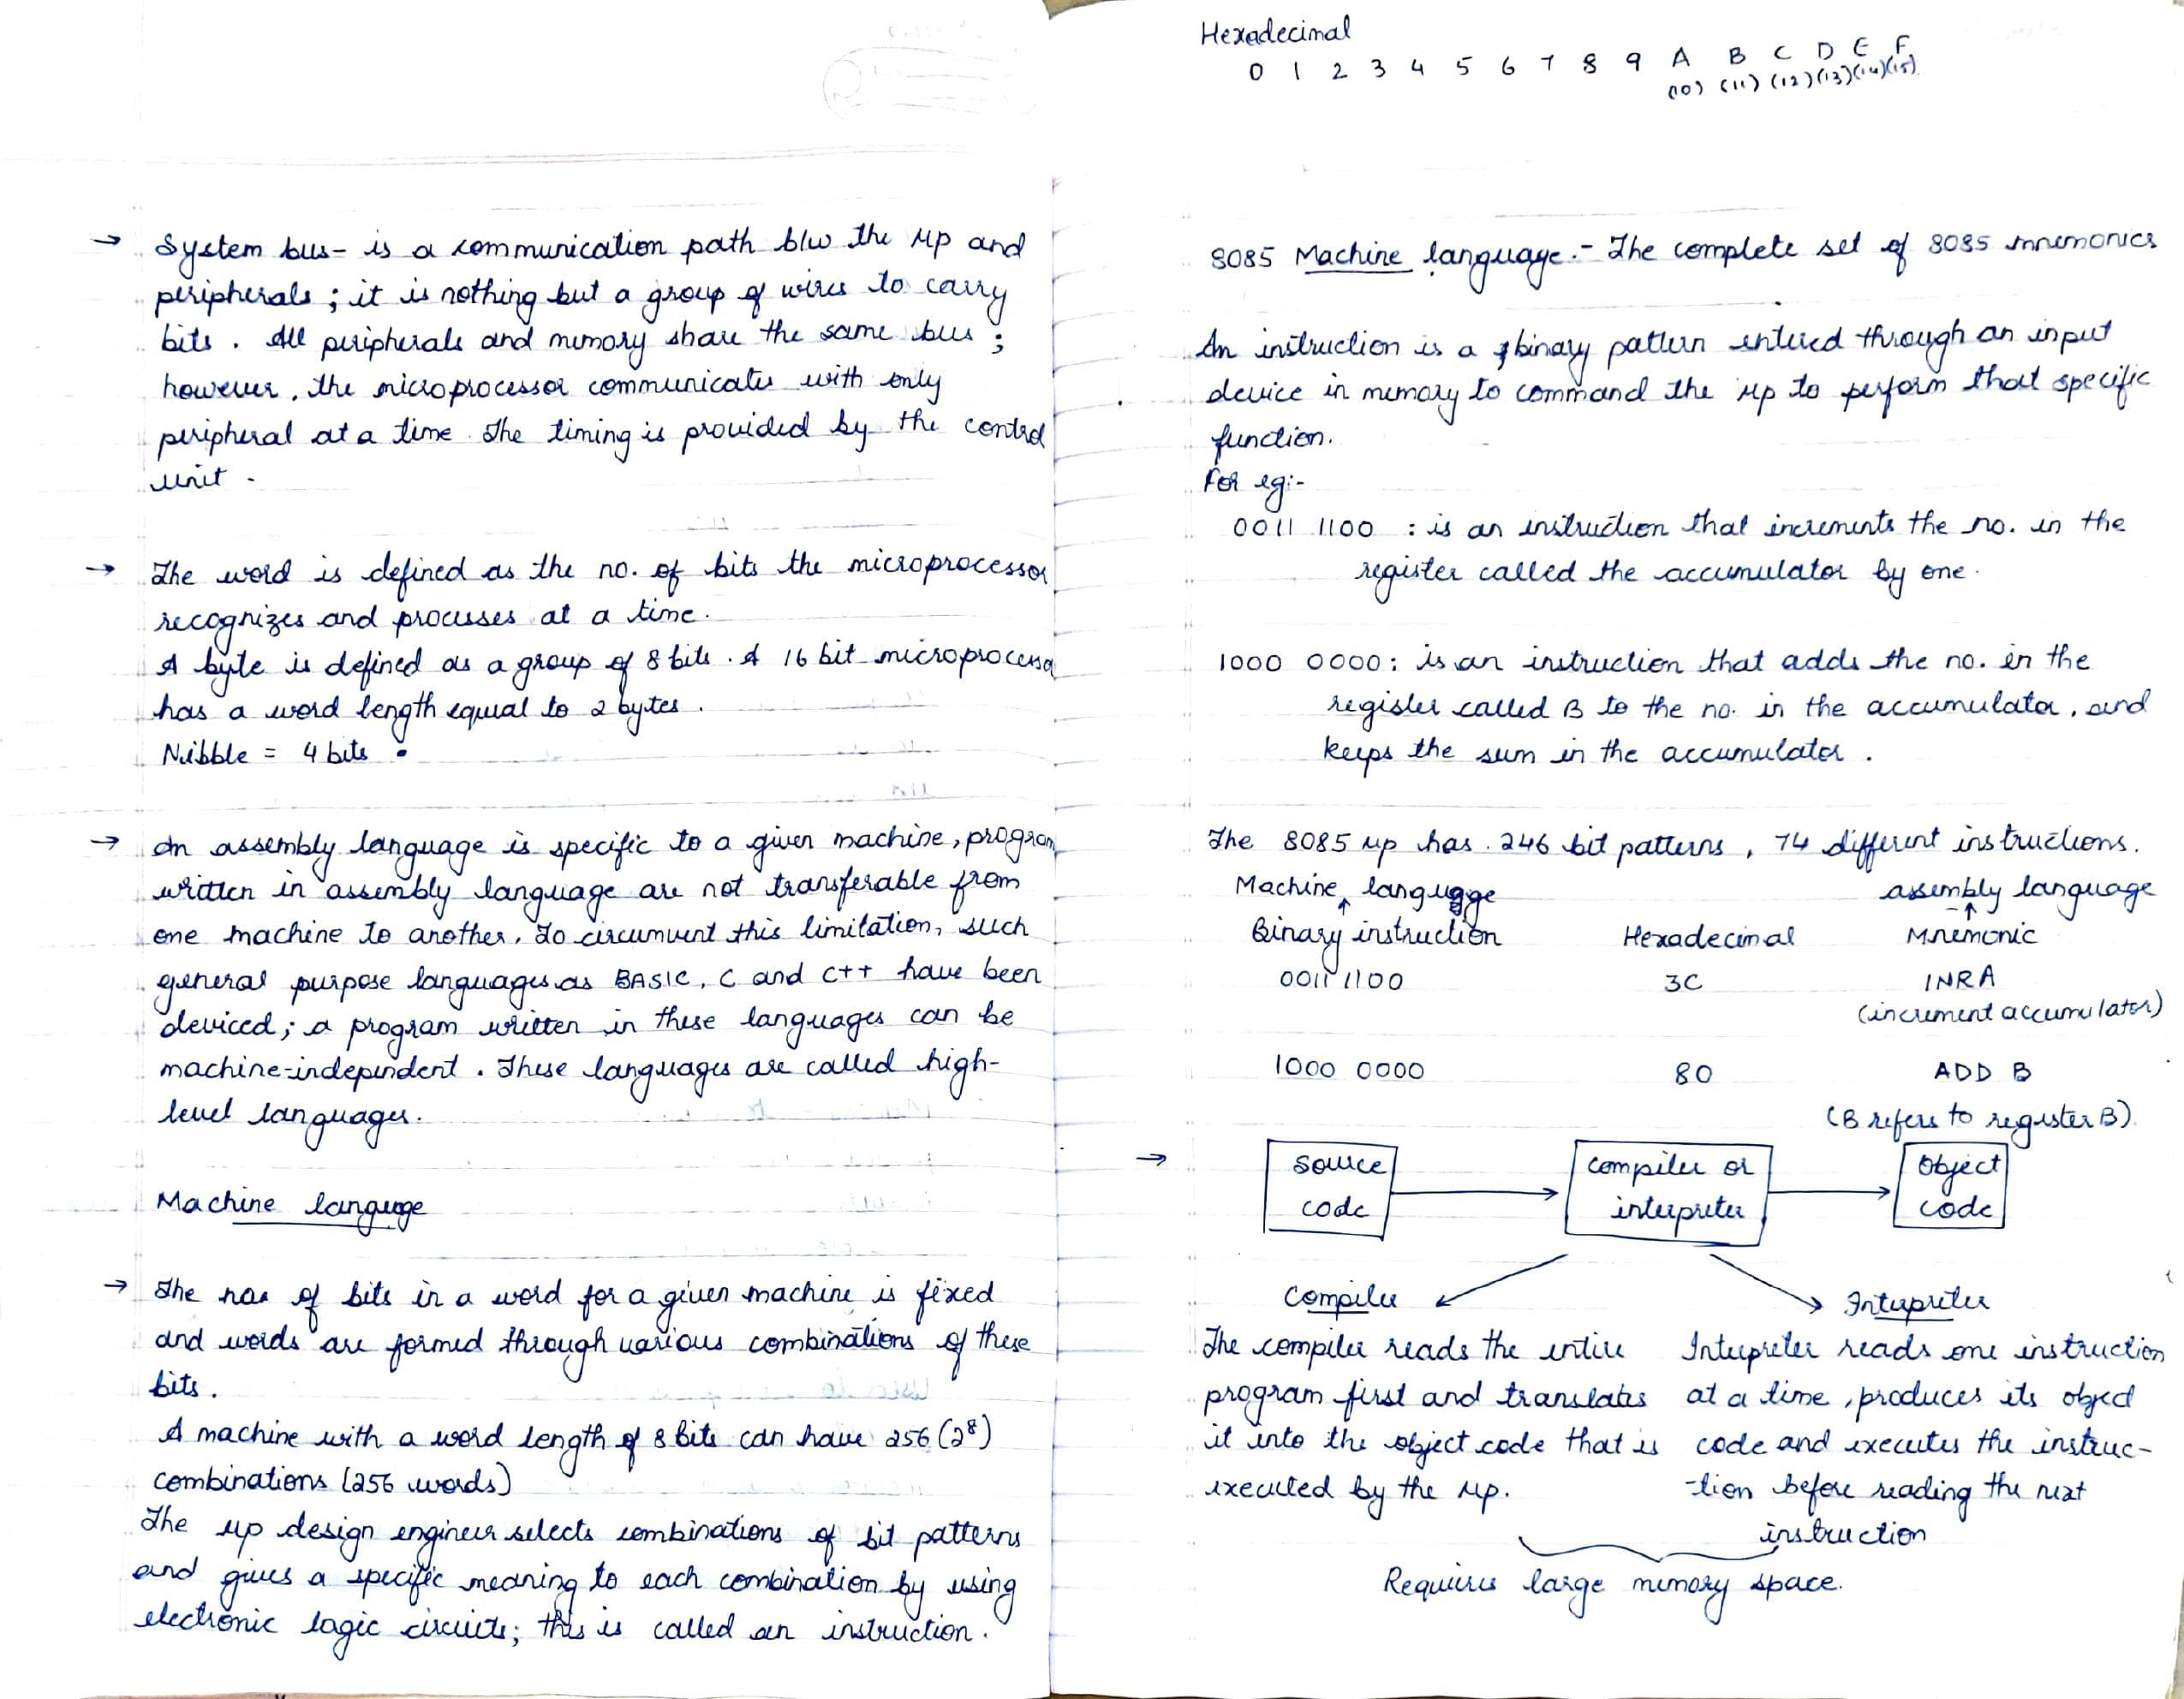 → System bus- is a communication path b/w the μp and
peripherals ; it is nothing but a group of wires to carry
bits . All peripherals and memory share the same bus ;
however, the microprocessor communicates with only
peripheral at a time. The timing is provided by the control
unit .
→ The word is defined as the no. of bits the microprocessor
recognizes and processes at a time.
A byte is defined as a group of 8 bits . A 16 bit microprocessor
has a word length equal to 2 bytes .
Nibble = 4 bits .
→ An assembly language is specific to a given machine, program
written in assembly language are not transferable from
one machine to another. To circumvent this limitation, such
general purpose languages as BASIC, C and C++ have been
deviced; a program written in these languages can be
machine-independent . These languages are called high-
level languages.
Machine language
→ The nos of bits in a word for a given machine is fixed
and words are formed through various combinations of these
bits .
A machine with a word length of 8 bits can have 256 (2⁸)
combinations (256 words)
The μp design engineer selects combinations of bit patterns
and gives a specific meaning to each combination by using
electronic logic circuits; this is called an instruction .
Hexadecimal
0 1 2 3 4 5 6 7 8 9 A B C D E F
(10) (11) (12) (13) (14) (15)
8085 Machine language :- The complete set of 8085 mnemonics
An instruction is a binary pattern entered through an input
device in memory to command the μp to perform that specific
function.
For eg:-
0011 1100 : is an instruction that increments the no. in the
register called the accumulator by one .
1000 0000 : is an instruction that adds the no. in the
register called B to the no. in the accumulator, and
keeps the sum in the accumulator .
The 8085 μp has 246 bit patterns , 74 different instructions.
Machine language assembly language
↑ ↑
Binary instruction Hexadecimal Mnemonic
0011 1100 3C INRA
(increment accumulator)
1000 0000 80 ADD B
(B refers to register B)
→ source code → compiler or interpreter → Object code
Compiler Interpreter
The compiler reads the entire Interpreter reads one instruction
program first and translates at a time , produces its object
it into the object code that is code and executes the instruc-
executed by the μp. -tion before reading the next
instruction
Requires large memory space.